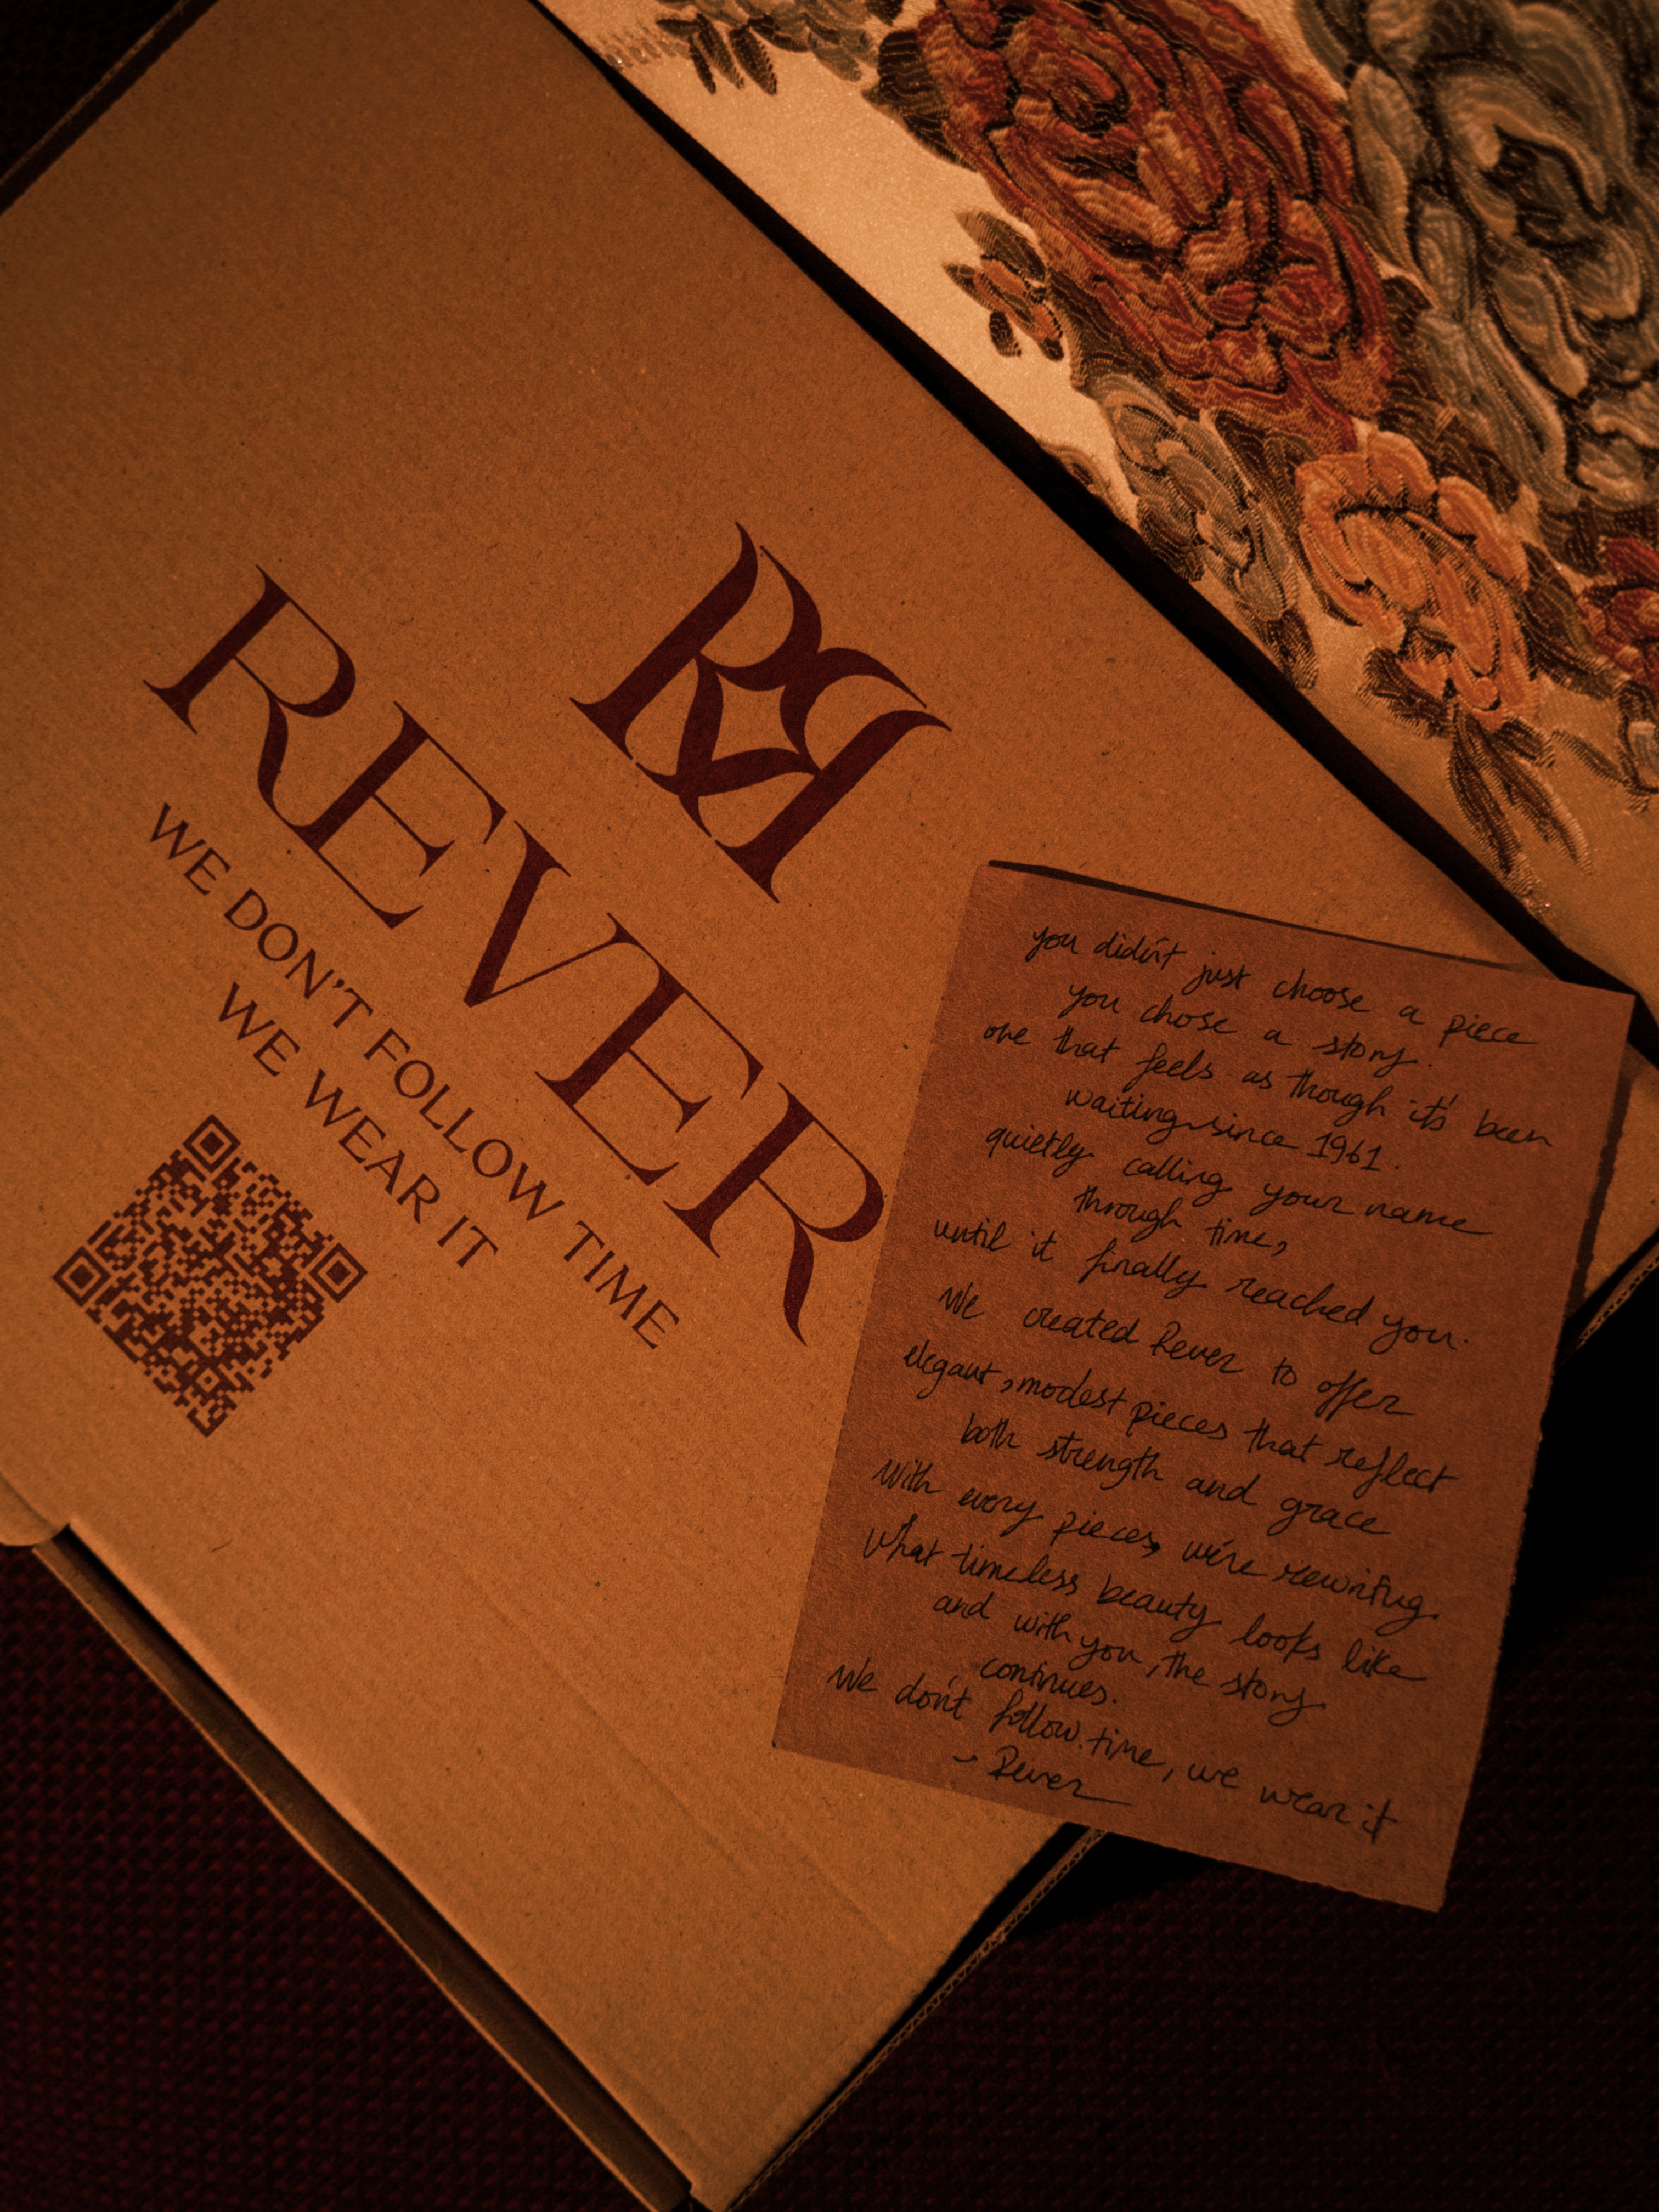 REVER
WE DON'T FOLLOW TIME
WE WEAR IT
you didn't just choose a piece
you chose a story.
one that feels as though it's been
waiting since 1961.
quietly calling your name
through time,
until it finally reached you.
We created Rever to offer
elegant, modest pieces that reflect
both strength and grace
With every pieces, we're rewriting
what timeless beauty looks like
and with you, the story
continues.
We don't follow time, we wear it
- Rever